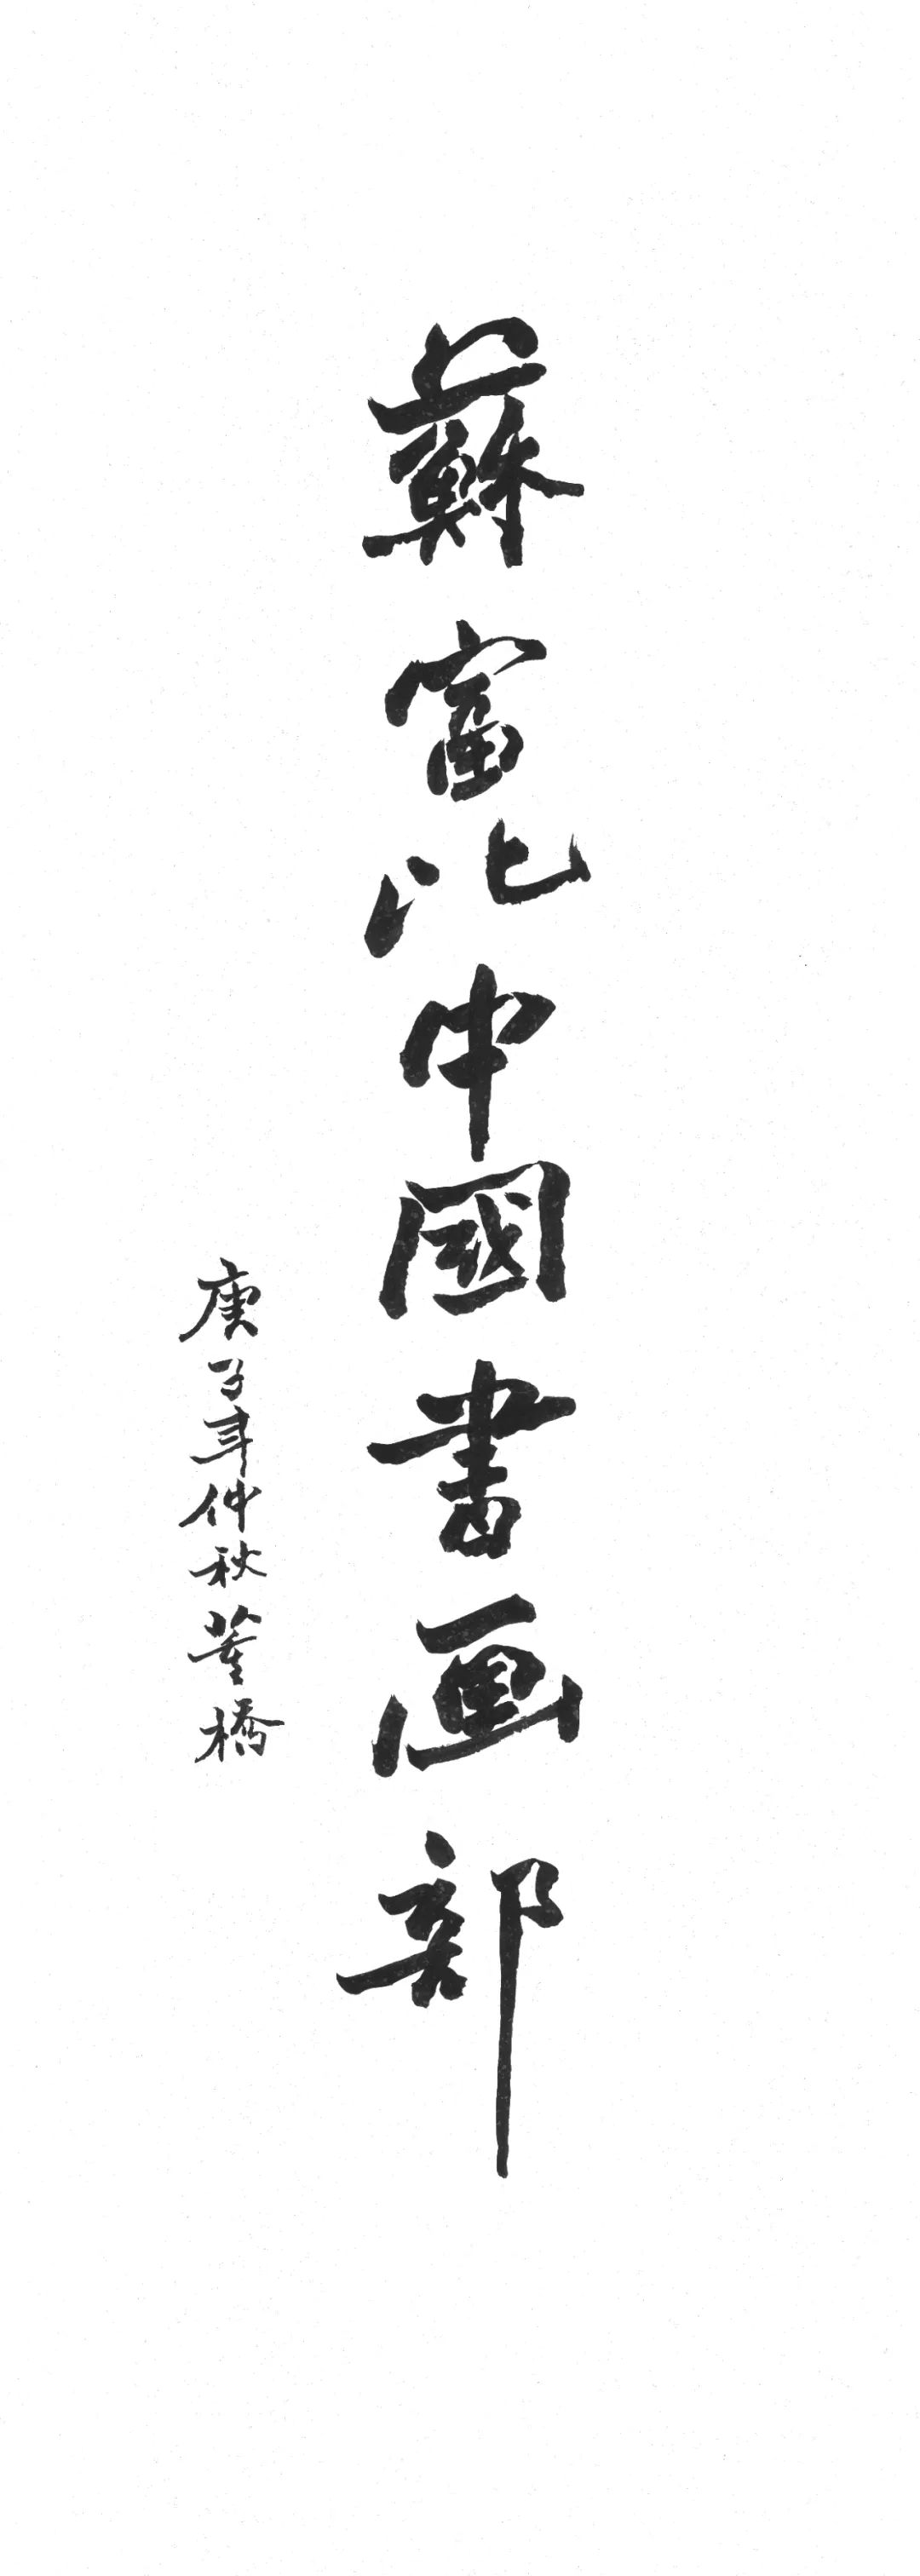 蘇富比中國書画部
庚子年仲秋董橋